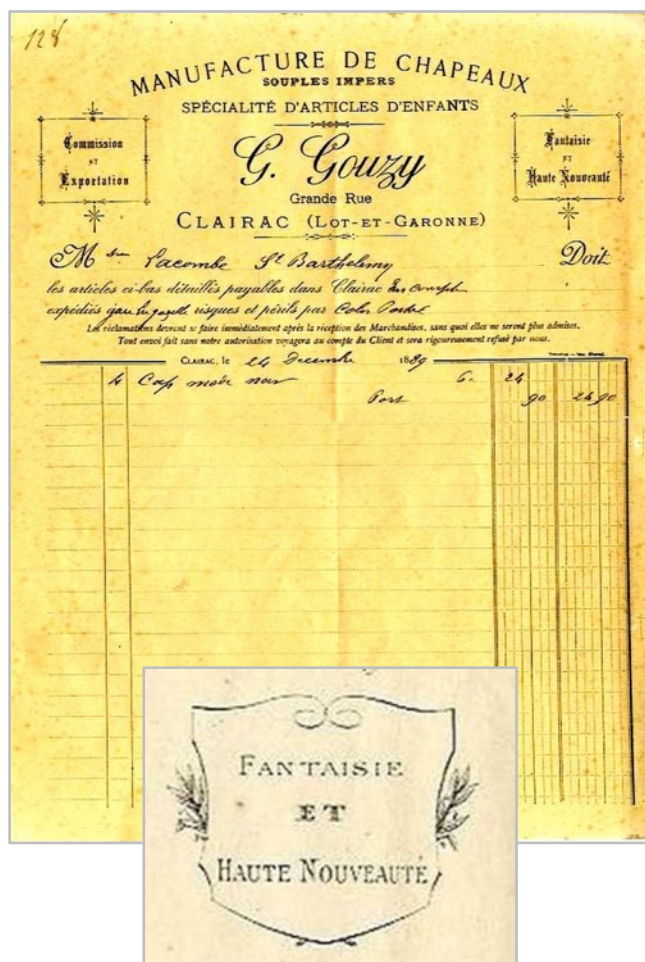 128
MANUFACTURE DE CHAPEAUX
SOUPLES IMPERS
SPÉCIALITÉ D'ARTICLES D'ENFANTS
Commission
ET
Exportation
Fantaisie
ET
Haute Nouveauté
G. Gouzy
Grande Rue
CLAIRAC (LOT-ET-GARONNE)
M Lacombe St Barthelemy Doit
les articles ci-bas détaillés payables dans Clairac
expédiés risques et périls par Colis Postal
Les réclamations devront se faire immédiatement après la réception des Marchandises, sans quoi elles ne seront plus admises.
Tout envoi fait sans notre autorisation voyagera au compte du Client et sera rigoureusement refusé par nous.
CLAIRAC, le 24 Decembre 1889
4 Cap noir 6. 24
Port 90 24 90
FANTAISIE
ET
HAUTE NOUVEAUTÉ